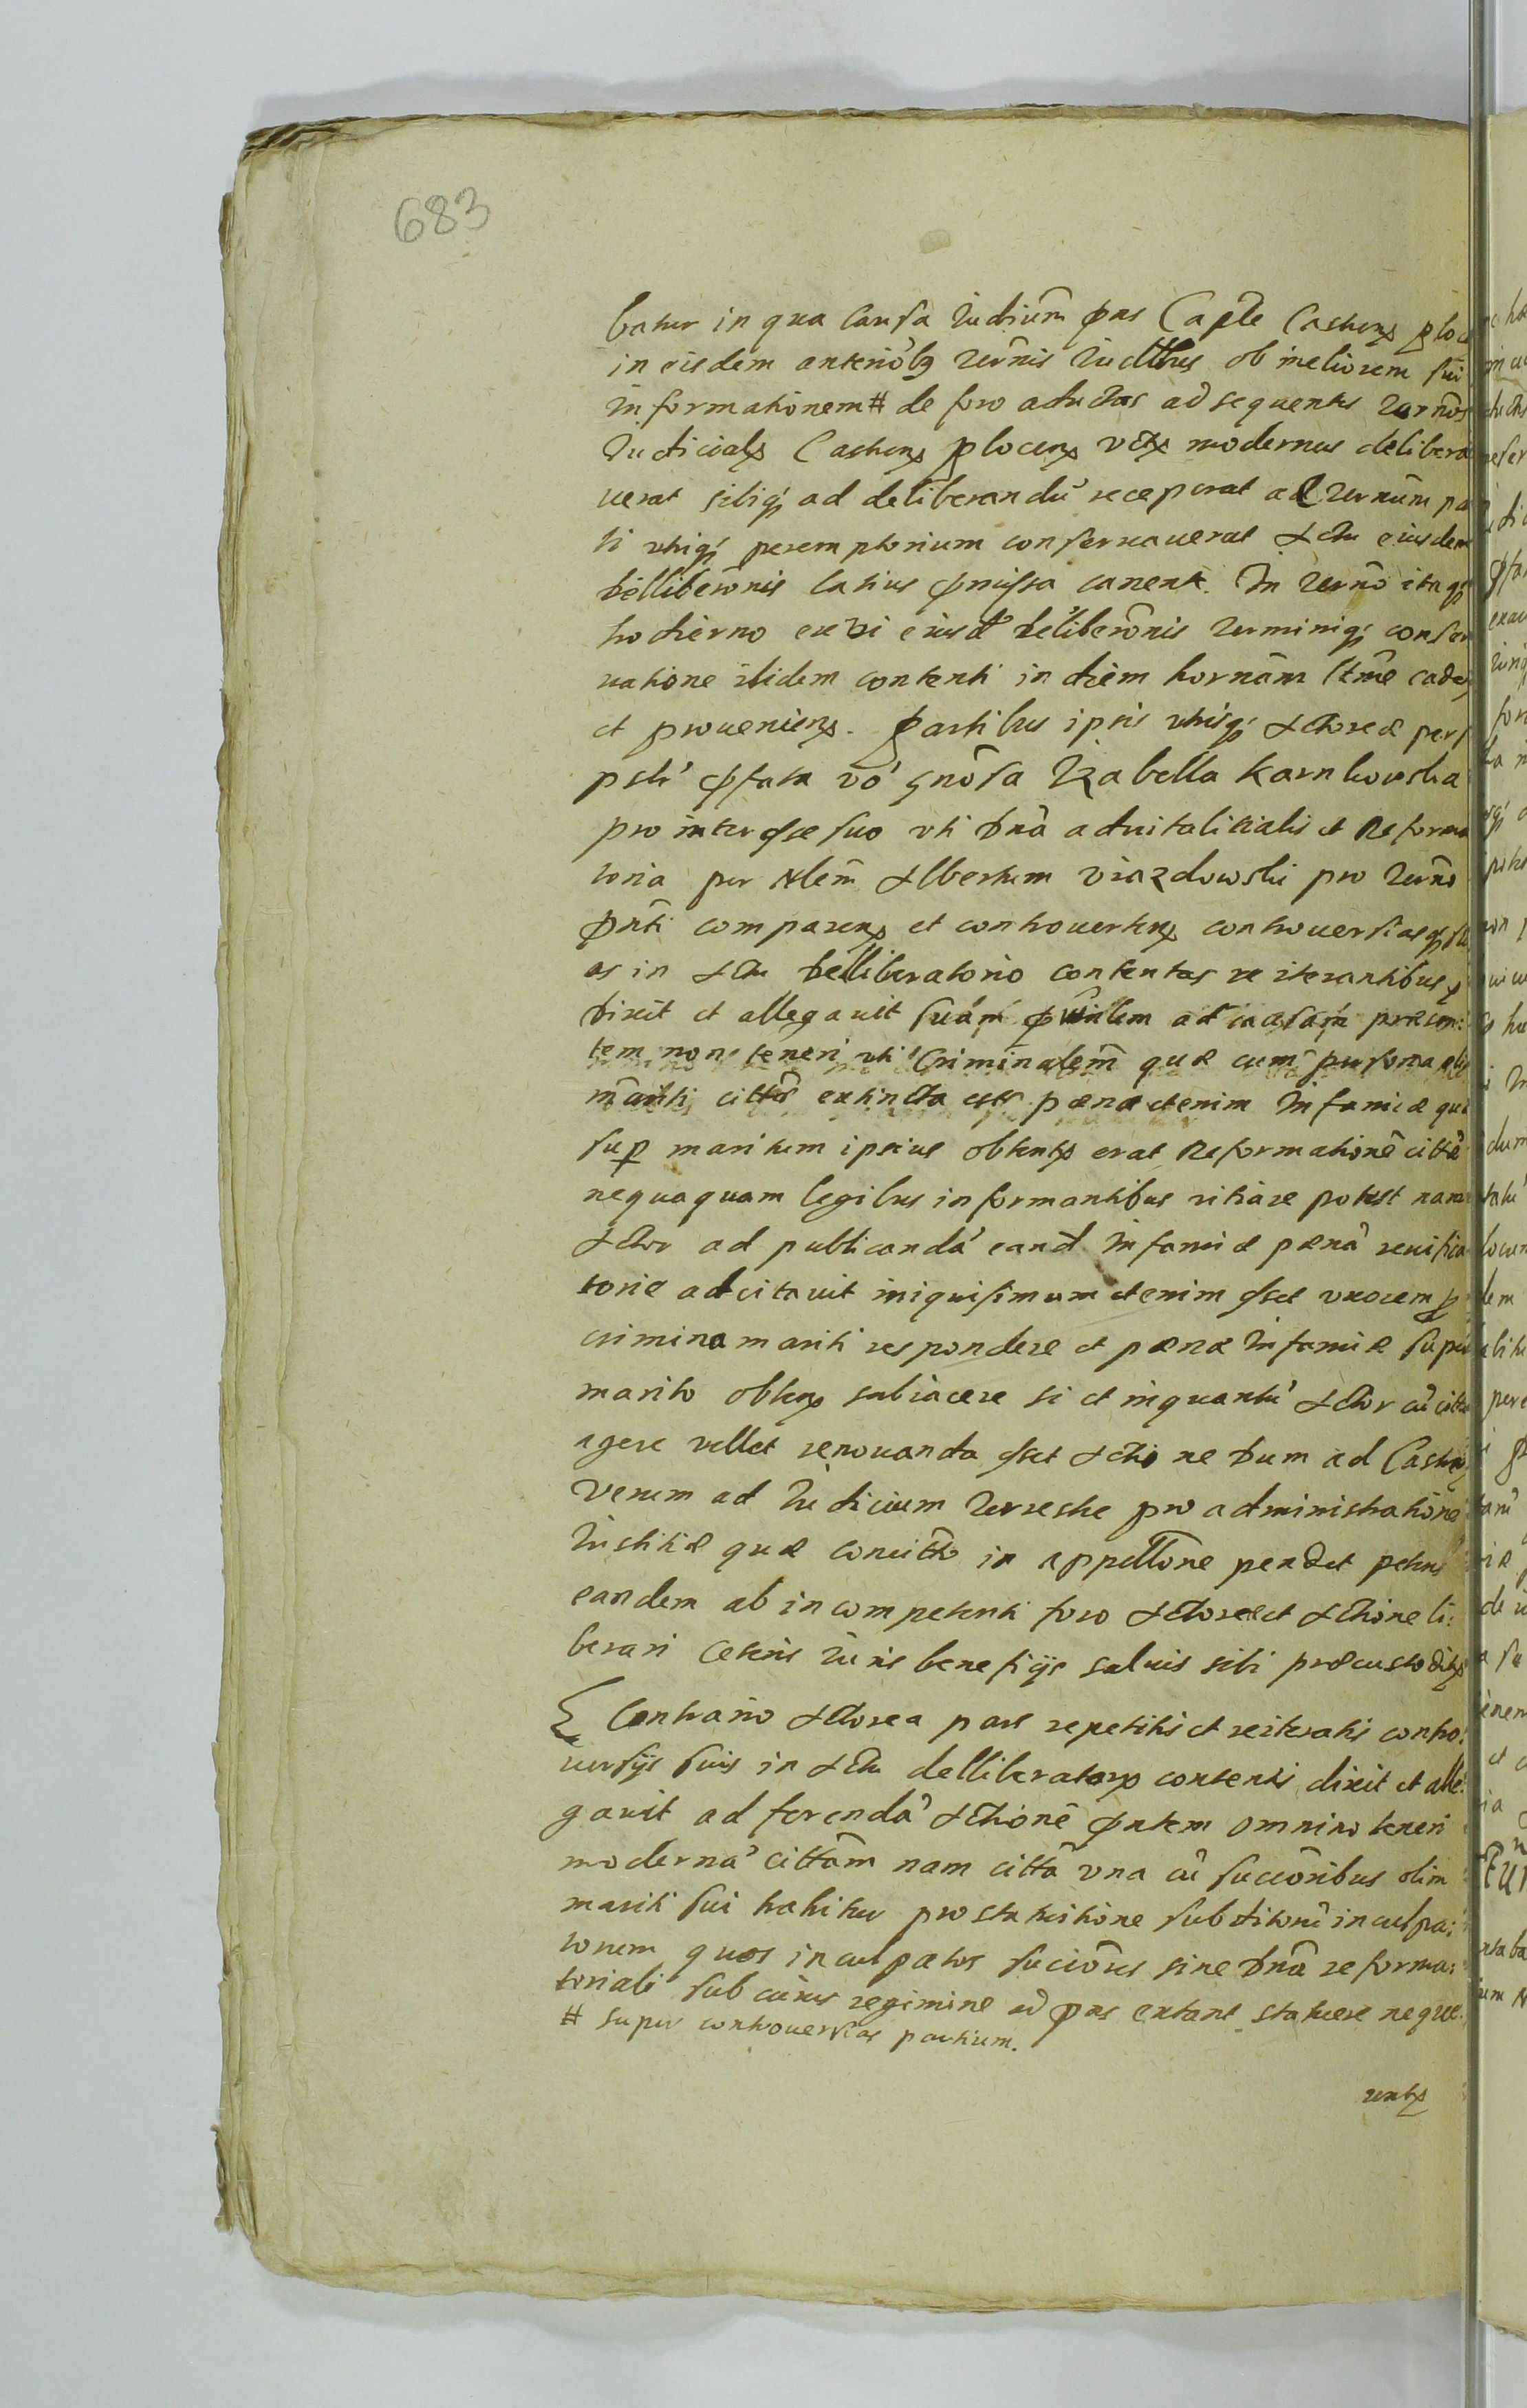 683
batur in qua Causa Iudiũm pns Capłe Castrens ploc
in eisdem anteriõbq termis Iudłbus ob meliorem sui
Informationem # de foro adductas ad sequentes termõs
Iudiciales Castrens plocens vtq modernus delibera
uerat sibiq ad deliberandũ receperat ac termũm par
ti utriq peremptorium conseruauerat Actu eiusdem
Delliberõnis latius pmissa canente. In termõ itaq
hodierno ex vi eiusd deliberõnis terminiq conser
uatione ibidem contenti in diem hornãm ltme caden
et prouenien. Partibus ipsis utrisq Actorea per
pstĩ pfata võ gnõsa Izabella Karnkowska
pro interesse suo uti Dnã aduitalitialis et Reforma
toria per Nlem Albertum Viazdowski pro termõ
pnti comparens et controuertens controuersiasq su
as in Actu Delliberatorio contentas reiterantibus
dixit et allegauit suam pncipalem ad causam præsen:
tem non teneri uti Criminalem quæ cum persona
mariti cittõ extincta est pæna etenim Infamiæ quæ
sup maritum ipsius obtenta erat Reformationẽ cittã
nequaquam legibus informantibus vitiare potest nam
Actor ad publicandã eand Infamiæ pænã reuisica
torie adcitauit iniquisimum etenim esset uxorem p
crimina mariti respondere et pænæ Infamiæ super
marito obtens subiacere si et inquantũ Actor cũ citta
agere vellet renouanda esset Actio ne dum ad Castren
verum ad Iudicium Terrestre pro administratione
Iustitiæ quæ conuitto in appellõne pendet petens
eandem ab incompetenti foro Actoreaet Actione li:
berari Ceteris iuris beneficijs saluis sibi præcustoditis
Contrario Actorea pars repetitis et reiteratis contro:
uersijs suis in Actu delliberatorio contentis dixit et alle:
gauit ad ferendã Actionẽ pntem omnino teneri
modernã cittãm nam cittã una cũ succõribus olim
mariti sui trahitur pro statuitione subditorũ inculpa:
torum quos inculpatos succõres sine Dnã reforma:
toriali sub cuius regimine ad pns extant statuere neque:
# super controuersias partium.
untes